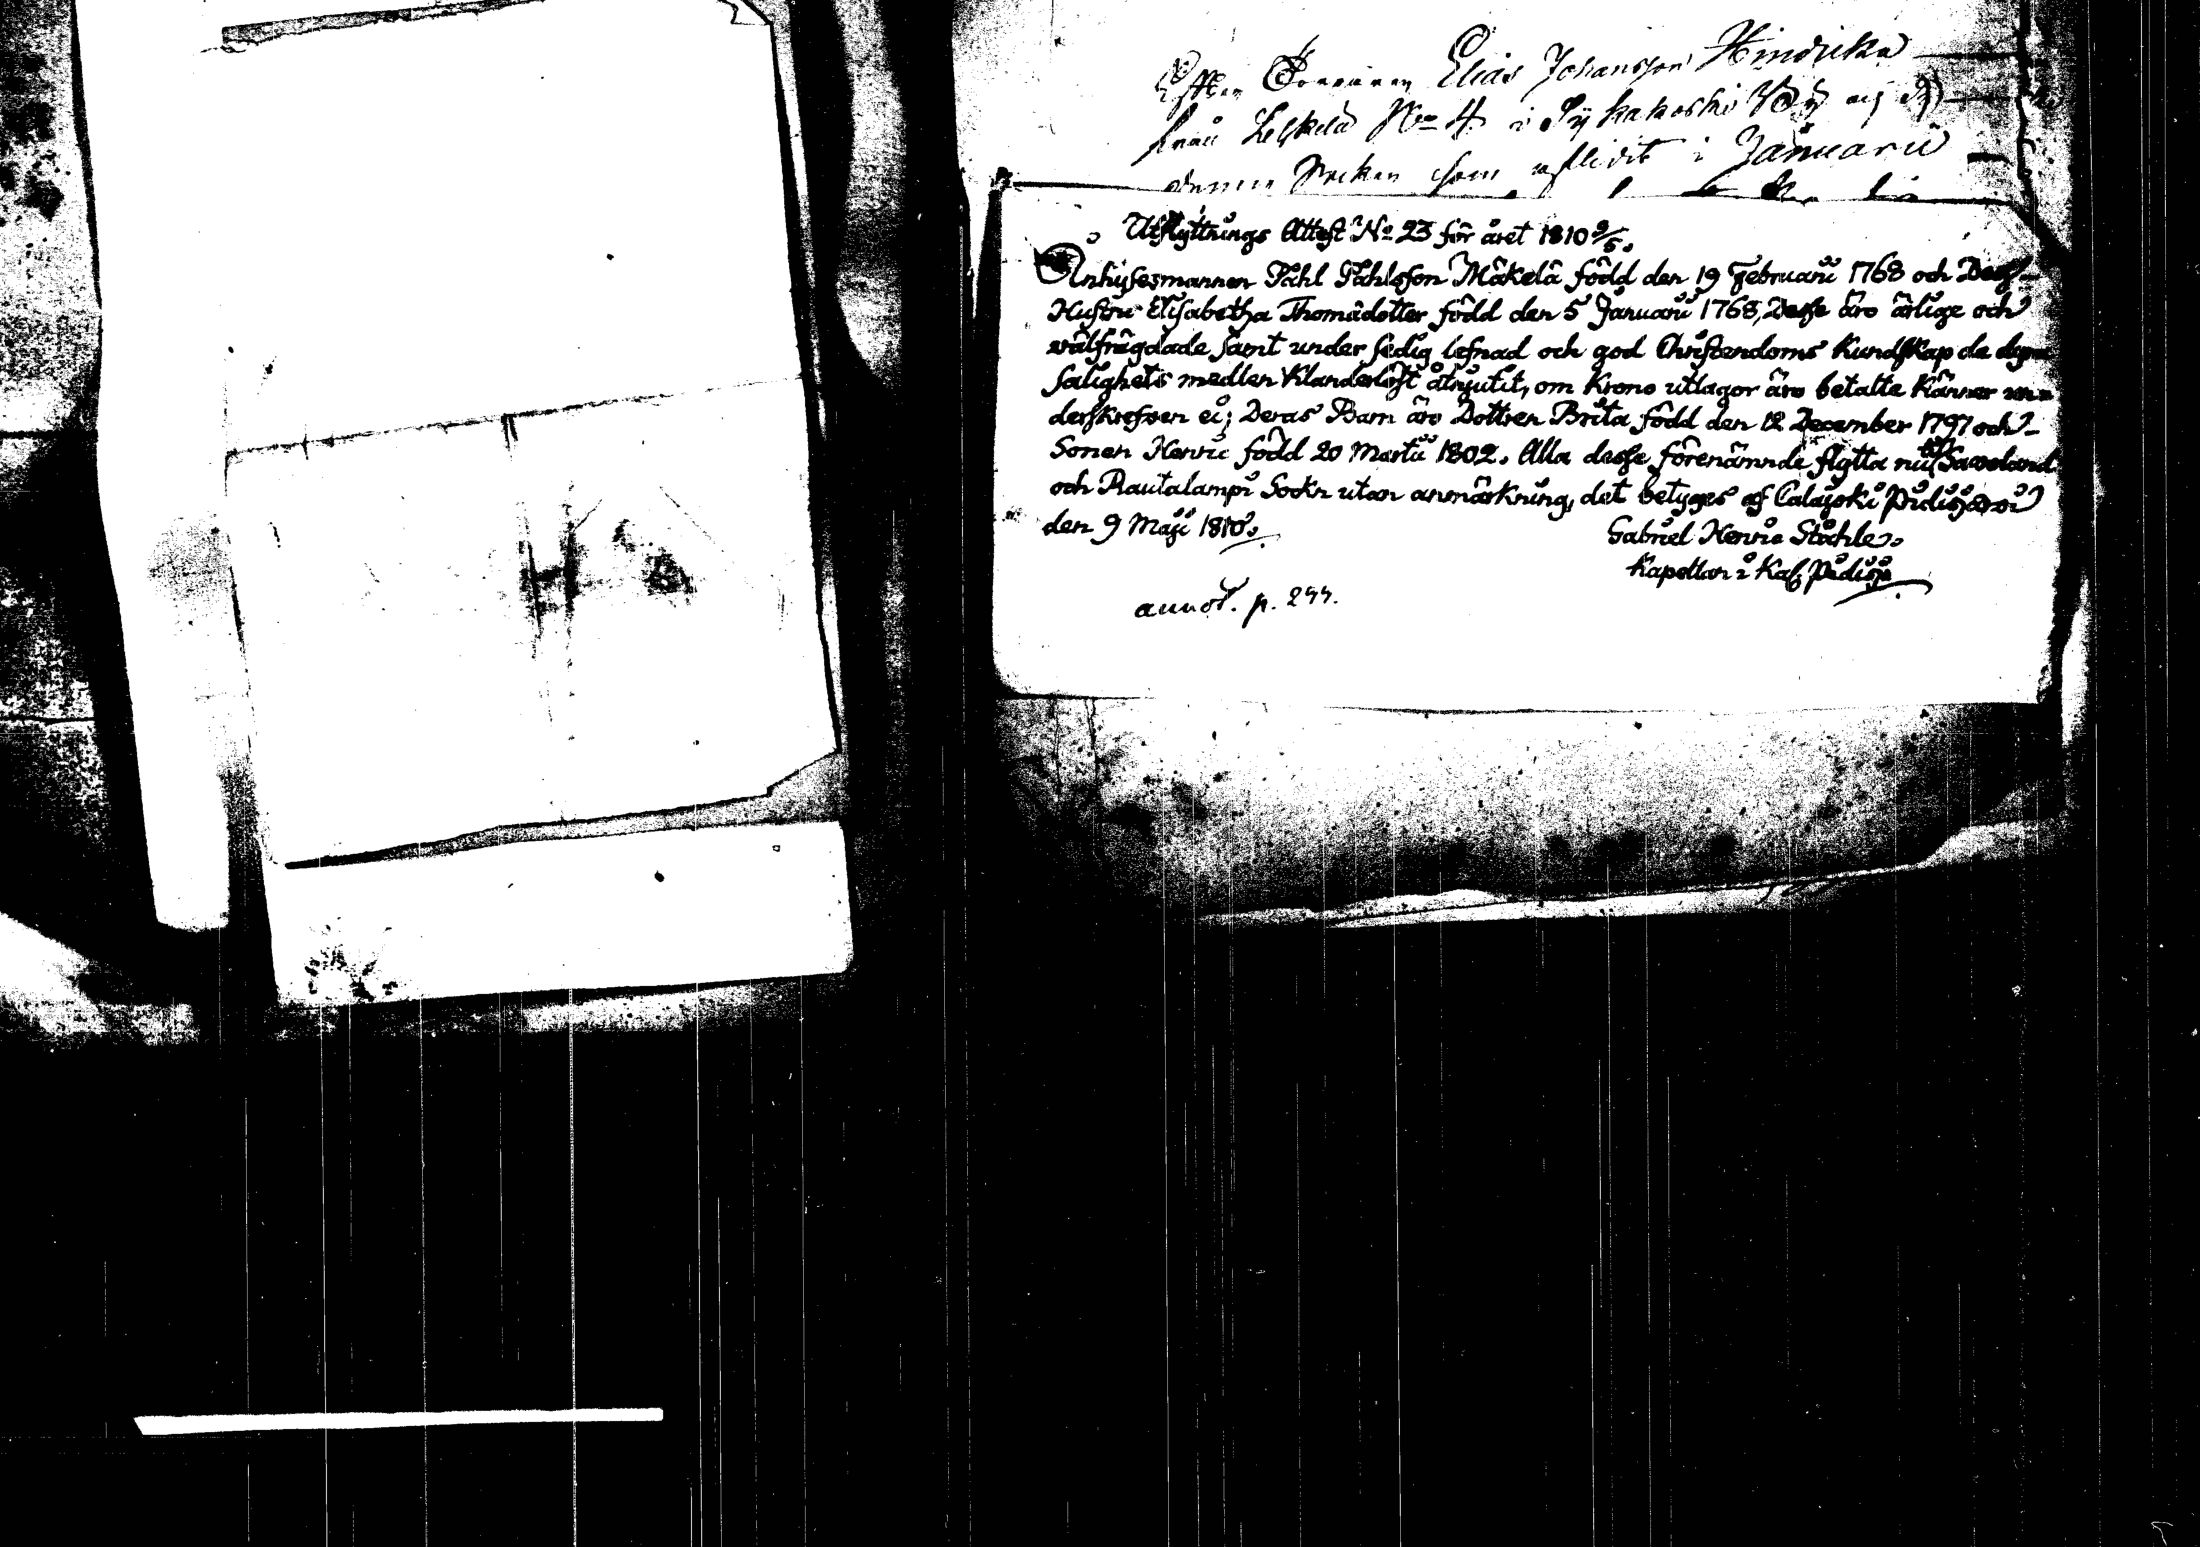 Elias Johansson Hindricka
från Leskelä No 4 i Pyhäkoski By
denna Socken som aflidit i Januarii
Utflyttnings Attest No 23 för året 1810 9/5.
Inhysesmannen Påhl Påhlsson Mäkelä född den 19 Februarii 1768 och Dess
Hustru Elisabetha Thomädotter född den 5 Januarii 1768, Desse äro ärlige och
wälfrägdade samt under sedig lefnad och god Christendoms Kundskap de dyra
Salighets medlen Klanderlöst åtnjutit, om Krono utlagor äro betalte Känner un=
derskrefven ei; Deras Barn äro Dottren Brita född den 12 December 1797 och
Sonen Henric född 20 Martii 1802. Alla desse förenämnde flytta nu till Savoland
och Rautalampi Sockn utan anmärkning, det betyges af Calajoki Pudisjärvi
den 9 Maji 1810.
Gabriel Henric Ståhle.
Kapellan i Kal. Pudisj.
annot. p. 244.